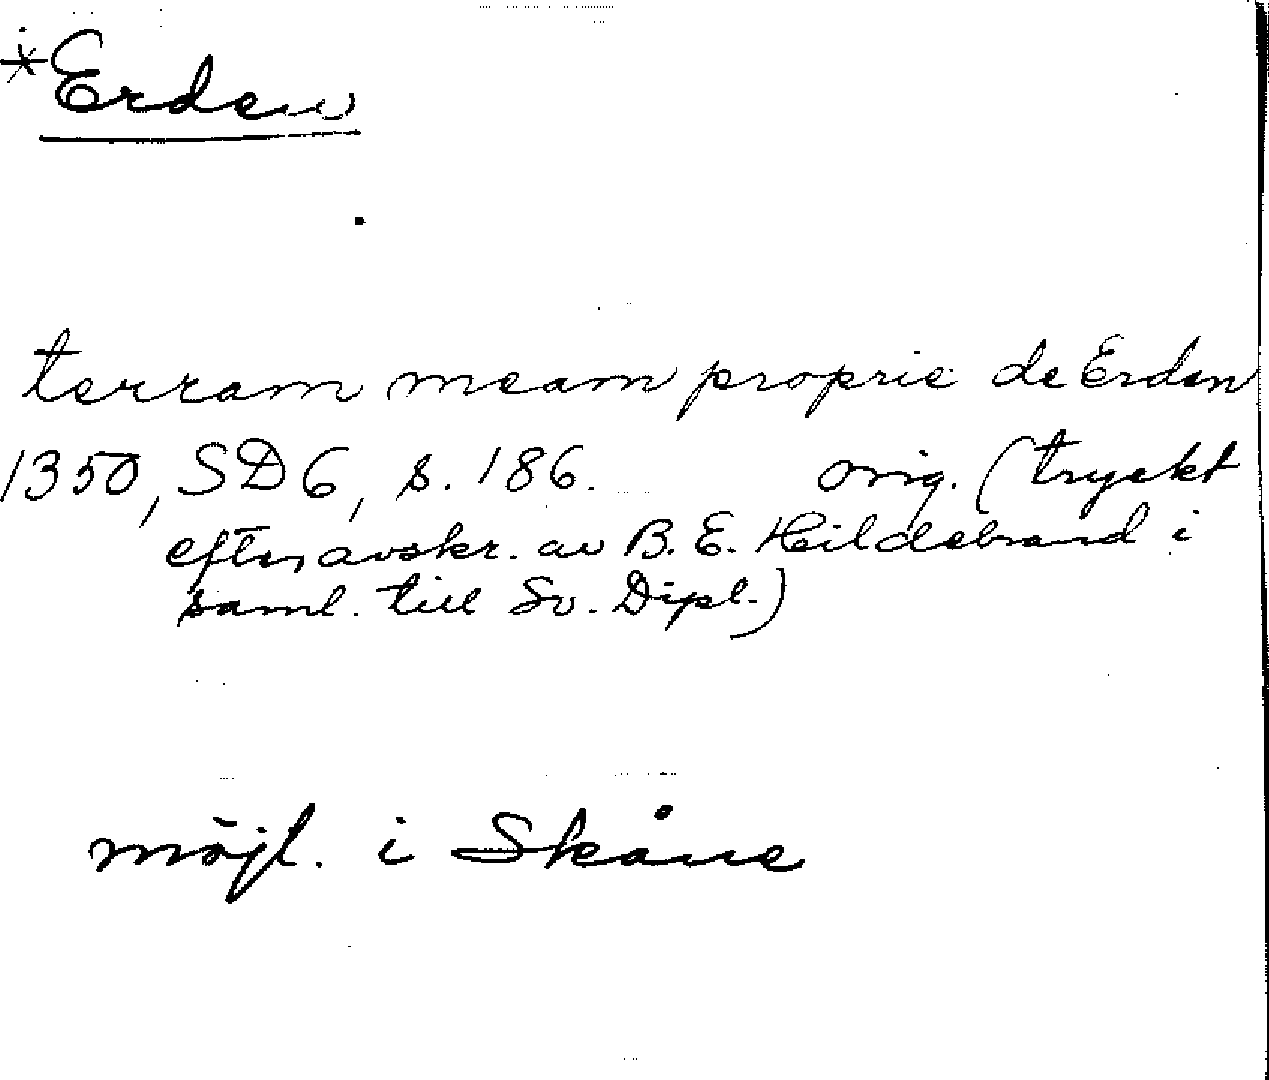 *Erden
terram meam proprie de Erden
1350, SD 6, s. 186. orig. (tryckt
efter avskr. av B. E. Hildebrand i
saml. till Sv. Dipl.)
möjl. i Skåne